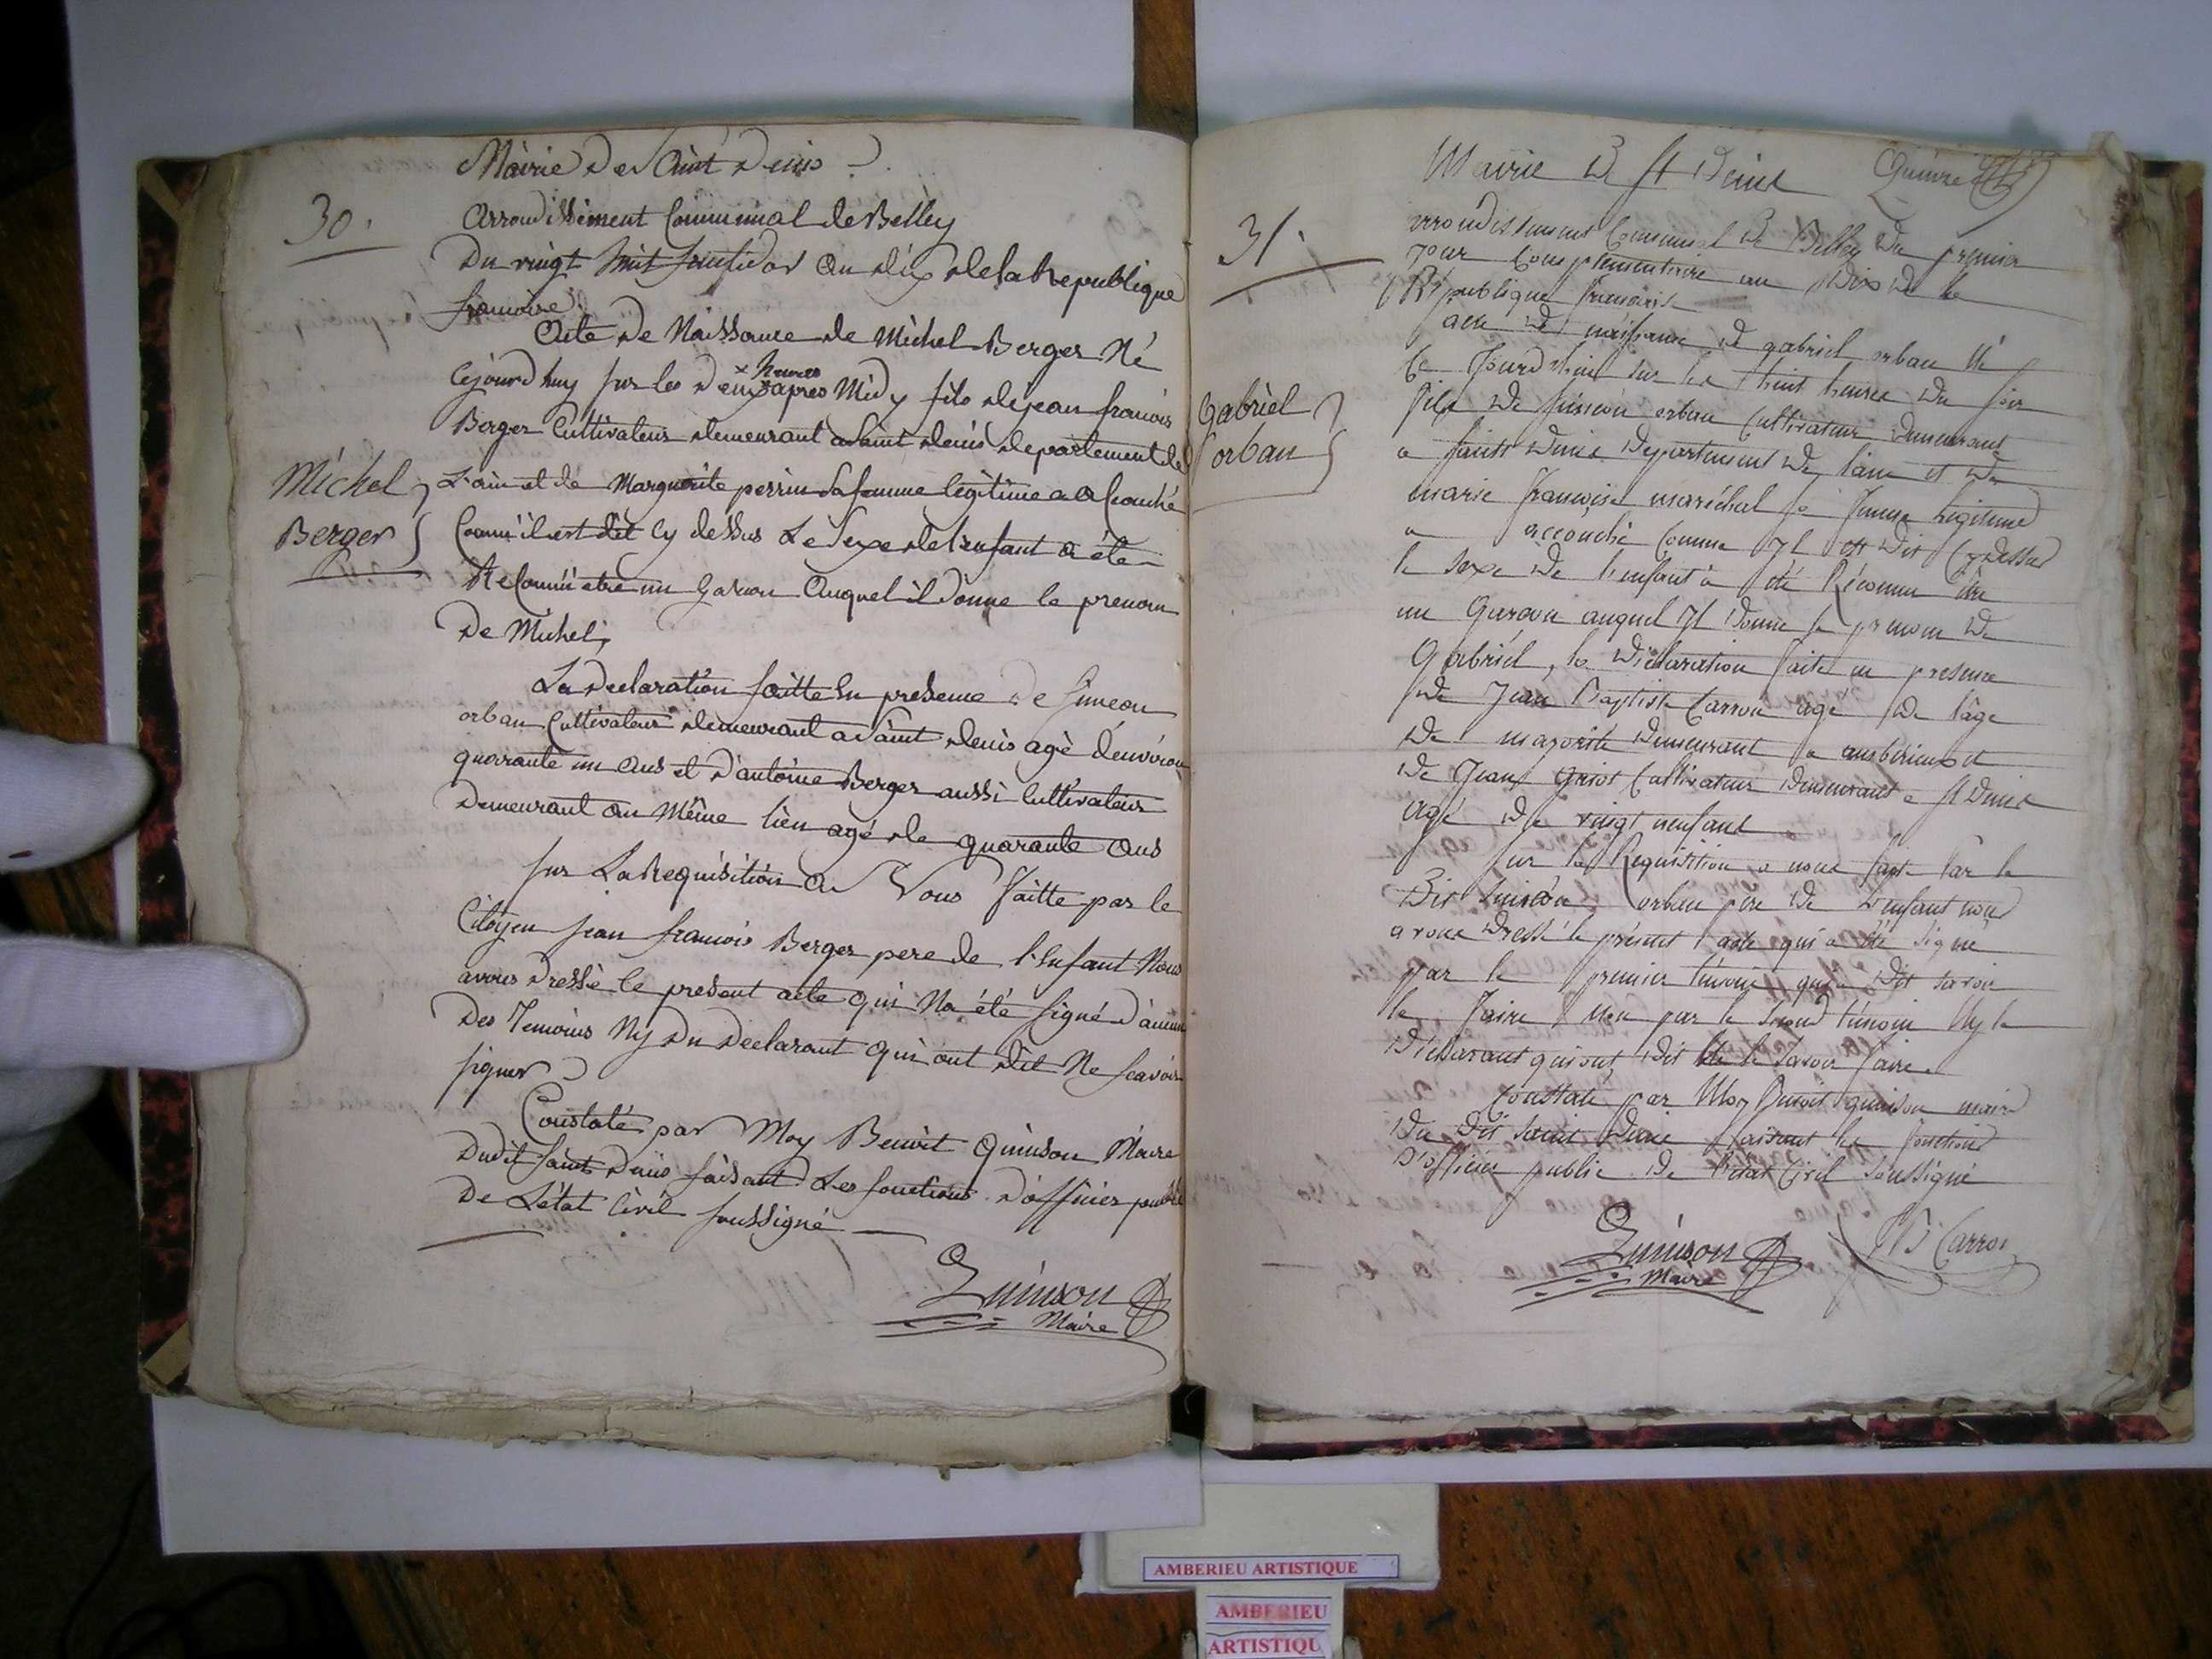 Mairie de Saint denis
30.
Arrondissement Communal de Belley
Du vingt huit fructidor an dix de la Republique
francoise.
Acte de Naissance de Michel Berger Né
x heures
cejourdhuy sur les deux x apres Midy fils de jean francois
Berger Cultivateur demeurant a saint denis departement de
L'ain et de Marguerite perrin sa femme legitime a acouché
Comm'il est dit cy dessus Le sexe de l'enfant a été
Reconnu etre un Garcon Auquel il donne le prenom
de Michel,
Michel
Berger
La declaration faitte En presence de simeon
orban Cultivateur demeurant a saint denis agé d'environ
quarante un ans et d'antoine Berger aussi Cultivateur
demeurant au Même lieu agé de quarante ans
sur La Requisition a Nous faitte par le
Citoyen jean francois Berger pere de l'Enfant Nous
avons dressé le present acte qui Na été signé d'aucun
des Temoins Ny du declarant qui ont dit Ne scavoir
signer
Constaté par Moy Benoit Quinson Maire
dudit saint denis faisant Les fonctions d'officier public
de L'état Civil soussigné
Quinson
Maire
Mairie de st denis
31.
arrondissement Communal de Belley du premier
jour Complementaire an dix de la
Republique francaise
acte de naissance de gabriel orban né
Ce Jourdhui sur les huit heures du soir
fils de simeon orban Cultivateur demeurant
a saint denis departement de l'ain et de
marie francoise maréchal sa femme legitime
a accouché comme il est dit Cy dessus
le sexe de l'enfant a été Reconnu être
un Garcon auquel Il donne le prenom de
Gabriel, la declaration faite en presence
de Jean Baptiste Carron agé de l'âge
de majorité demeurant a amberieux et
de Jean Cultivateur demeurant a st denis
agé de vingt neuf ans
Gabriel
orban
sur la Requisition a nous faite par le
dit simeon orban pere de L'enfant nous
avons dressé le present acte qui a été signé
par le premier témoin qui a dit savoir
le faire Non par le second témoin Ny le
déclarant qui ont dit ne le savoir faire.
Constaté par Moy Benoit quinson maire
du dit saint denis faisant les fonctions
d'officier public de l'état Civil soussigné
Quinson
Maire
JB Carron
AMBERIEU ARTISTIQUE
AMBERIEU
ARTISTIQU